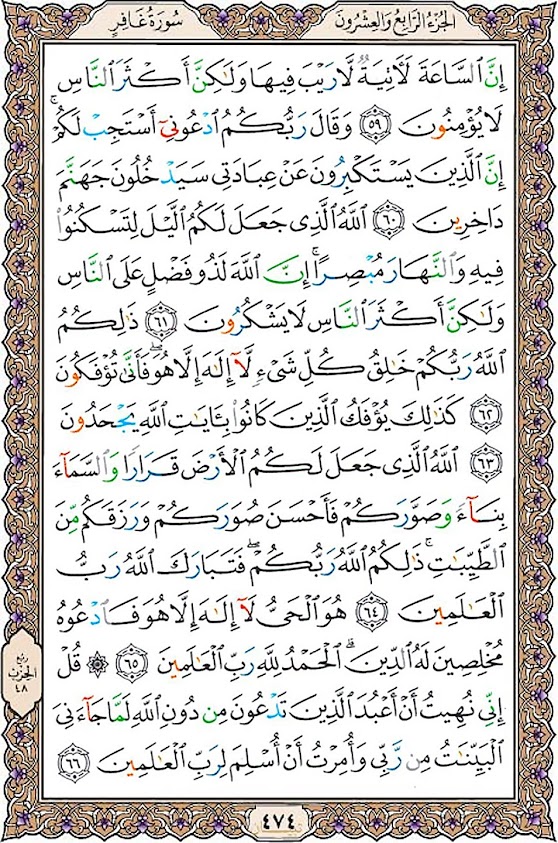 الجزء الرابع والعشرون
سورة غافر
إِنَّ ٱلسَّاعَةَ لَأٓتِيَةٌ لَّا رَيْبَ فِيهَا وَلَـٰكِنَّ أَكْثَرَ ٱلنَّاسِ
لَا يُؤْمِنُونَ ٥٩ وَقَالَ رَبُّكُمُ ٱدْعُونِىٓ أَسْتَجِبْ لَكُمْ ۚ
إِنَّ ٱلَّذِينَ يَسْتَكْبِرُونَ عَنْ عِبَادَتِى سَيَدْخُلُونَ جَهَنَّمَ
دَاخِرِينَ ٦٠ ٱللَّهُ ٱلَّذِى جَعَلَ لَكُمُ ٱلَّيْلَ لِتَسْكُنُوا۟
فِيهِ وَٱلنَّهَارَ مُبْصِرًا ۚ إِنَّ ٱللَّهَ لَذُو فَضْلٍ عَلَى ٱلنَّاسِ
وَلَـٰكِنَّ أَكْثَرَ ٱلنَّاسِ لَا يَشْكُرُونَ ٦١ ذَٰلِكُمُ
ٱللَّهُ رَبُّكُمْ خَـٰلِقُ كُلِّ شَىْءٍ لَّآ إِلَـٰهَ إِلَّا هُوَ ۖ فَأَنَّىٰ تُؤْفَكُونَ
٦٢ كَذَٰلِكَ يُؤْفَكُ ٱلَّذِينَ كَانُوا۟ بِـَٔايَـٰتِ ٱللَّهِ يَجْحَدُونَ
٦٣ ٱللَّهُ ٱلَّذِى جَعَلَ لَكُمُ ٱلْأَرْضَ قَرَارًا وَٱلسَّمَآءَ
بِنَآءً وَصَوَّرَكُمْ فَأَحْسَنَ صُوَرَكُمْ وَرَزَقَكُم مِّنَ
ٱلطَّيِّبَـٰتِ ۚ ذَٰلِكُمُ ٱللَّهُ رَبُّكُمْ ۖ فَتَبَارَكَ ٱللَّهُ رَبُّ
ٱلْعَـٰلَمِينَ ٦٤ هُوَ ٱلْحَىُّ لَآ إِلَـٰهَ إِلَّا هُوَ فَٱدْعُوهُ
مُخْلِصِينَ لَهُ ٱلدِّينَ ۗ ٱلْحَمْدُ لِلَّهِ رَبِّ ٱلْعَـٰلَمِينَ ٦٥ ۞ قُلْ
إِنِّى نُهِيتُ أَنْ أَعْبُدَ ٱلَّذِينَ تَدْعُونَ مِن دُونِ ٱللَّهِ لَمَّا جَآءَنِىَ
ٱلْبَيِّنَـٰتُ مِن رَّبِّى وَأُمِرْتُ أَنْ أُسْلِمَ لِرَبِّ ٱلْعَـٰلَمِينَ ٦٦
ربع
الحزب
٤٨
٤٧٤